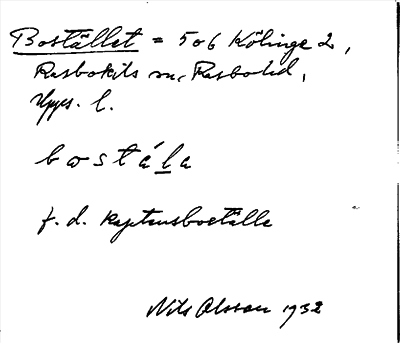 Bostället = 506 Kölinge 2,
Rasbokils sn, Rasbo hd,
Upps. l.
bostála
f. d. kaptensboställe
Nils Olsson 1932